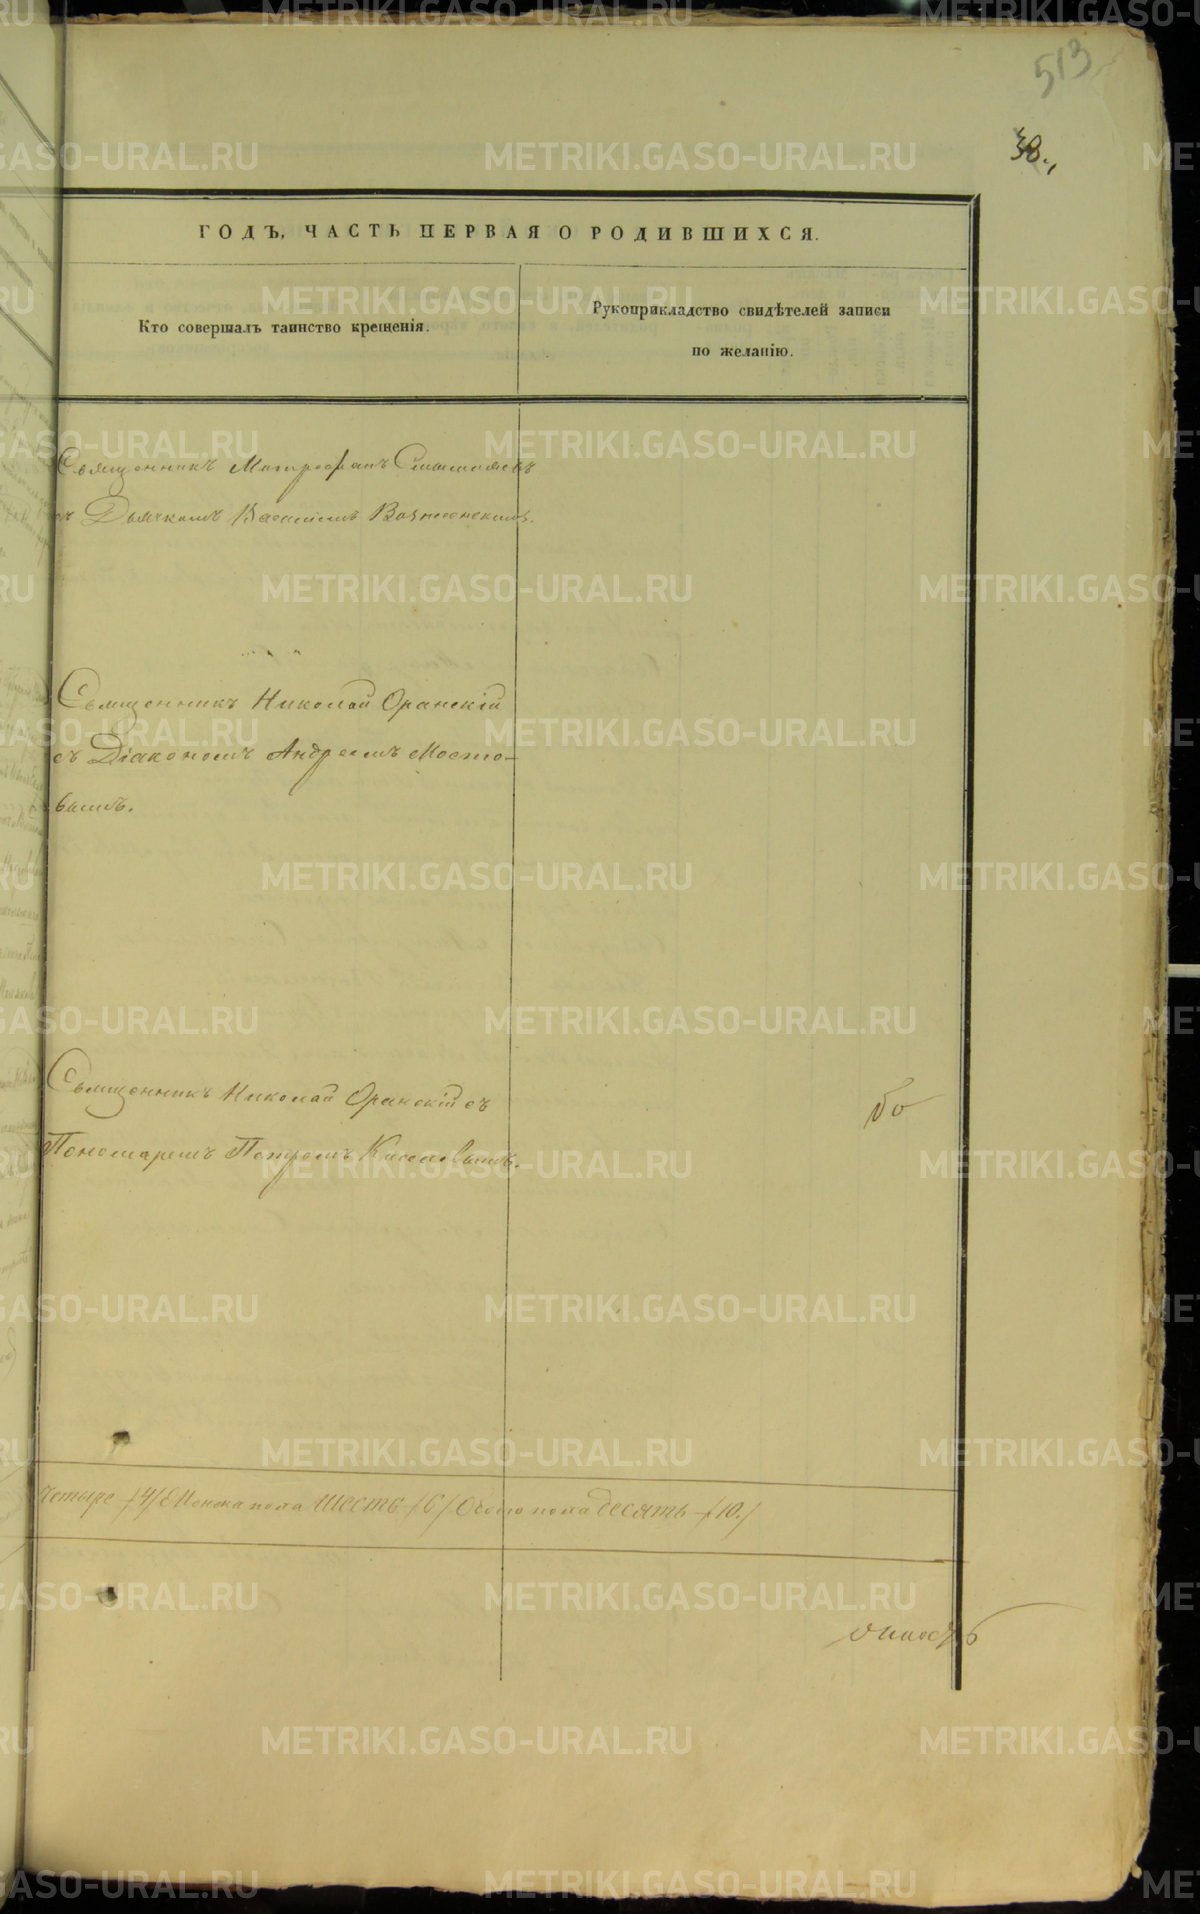 513
38.
ГОДЪ, ЧАСТЬ ПЕРВАЯ О РОДИВШИХСЯ.
Кто совершалъ таинство крещенія.
Рукоприкладство свидѣтелей записи
по желанію.
Священникъ Митрофанъ
съ Дьячкомъ Василіемъ Вознесенскимъ.
Священникъ Николай Оранскій
съ Діакономъ Андреемъ Мосто-
вымъ.
Священникъ Николай Оранскій съ
Пономаремъ Петромъ Киселевымъ.
Четыре /4/ Женска пола Шесть /6/ Обоего пола десять /10./
METRIKI.GASO-URAL.RU